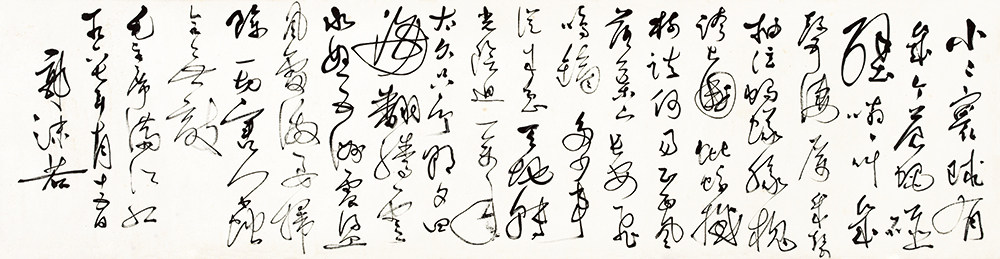 小小寰球有
幾个蒼蠅碰
壁嗡嗡叫幾
聲凄厉幾聲
抽泣螞蟻緣槐
誇大國蚍蜉撼
樹談何易正西風
落葉下長安飛
鳴鏑多少事
從来急天地轉
光陰迫一万年
太久只争朝夕四
海翻騰雲
水怒五洲震盪
風雷激要掃
除一切害人蟲
全无敵
毛主席滿江紅
月十五日
郭沫若